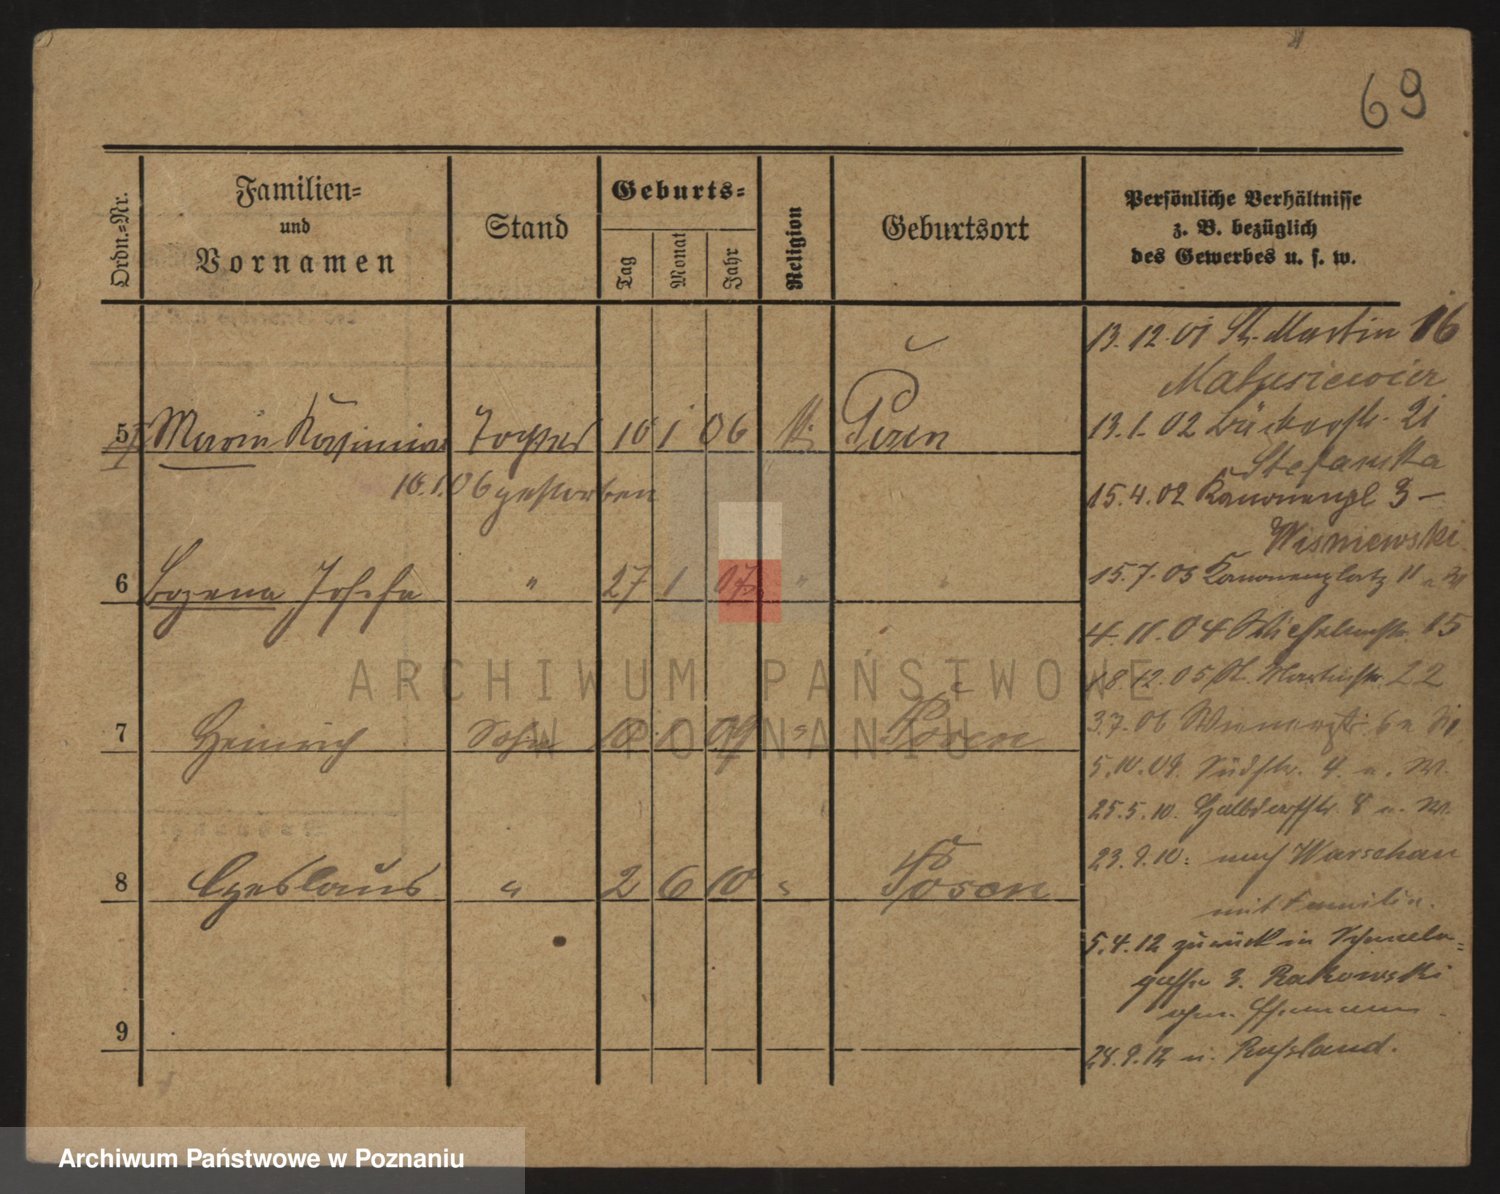 69
Ordn.-Nr.
Familien-
und
Vornamen
Stand
Geburts-
Tag
Monat
Jahr
Religion
Geburtsort
Persönliche Verhältnisse
z. B. bezüglich
des Gewerbes u. s. w.
5 Maria Kasimira Tochter 10 1 06 Posen
10.1.06 gestorben
6 Bozena Josefa " 27 1 07 " "
7 Heinrich Sohn 10 1 09 Posen
8 Czeslaus " 2 6 10 Posen
9
13.12.01 St. Martin 16
13.1.02 Bäckerstr. 21
Stefanska
15.4.02 Kanonenpl 3
Wisniewski
15.7.03 Kanonenplatz 11
4.11.04 15
18.12.05 St. Martinstr. 22
3.7.06
5.10.09. Südstr. 4.
25.5.10. Halbdorfstr. 8 u. W.
23.9.10. nach Warschau
mit Familie.
5.4.12 zurück in
gasse 3. Rakowski
ohne Ehemann.
28.9.12 n. Russland.
ARCHIWUM PAŃSTWOWE
W POZNANIU
Archiwum Państwowe w Poznaniu